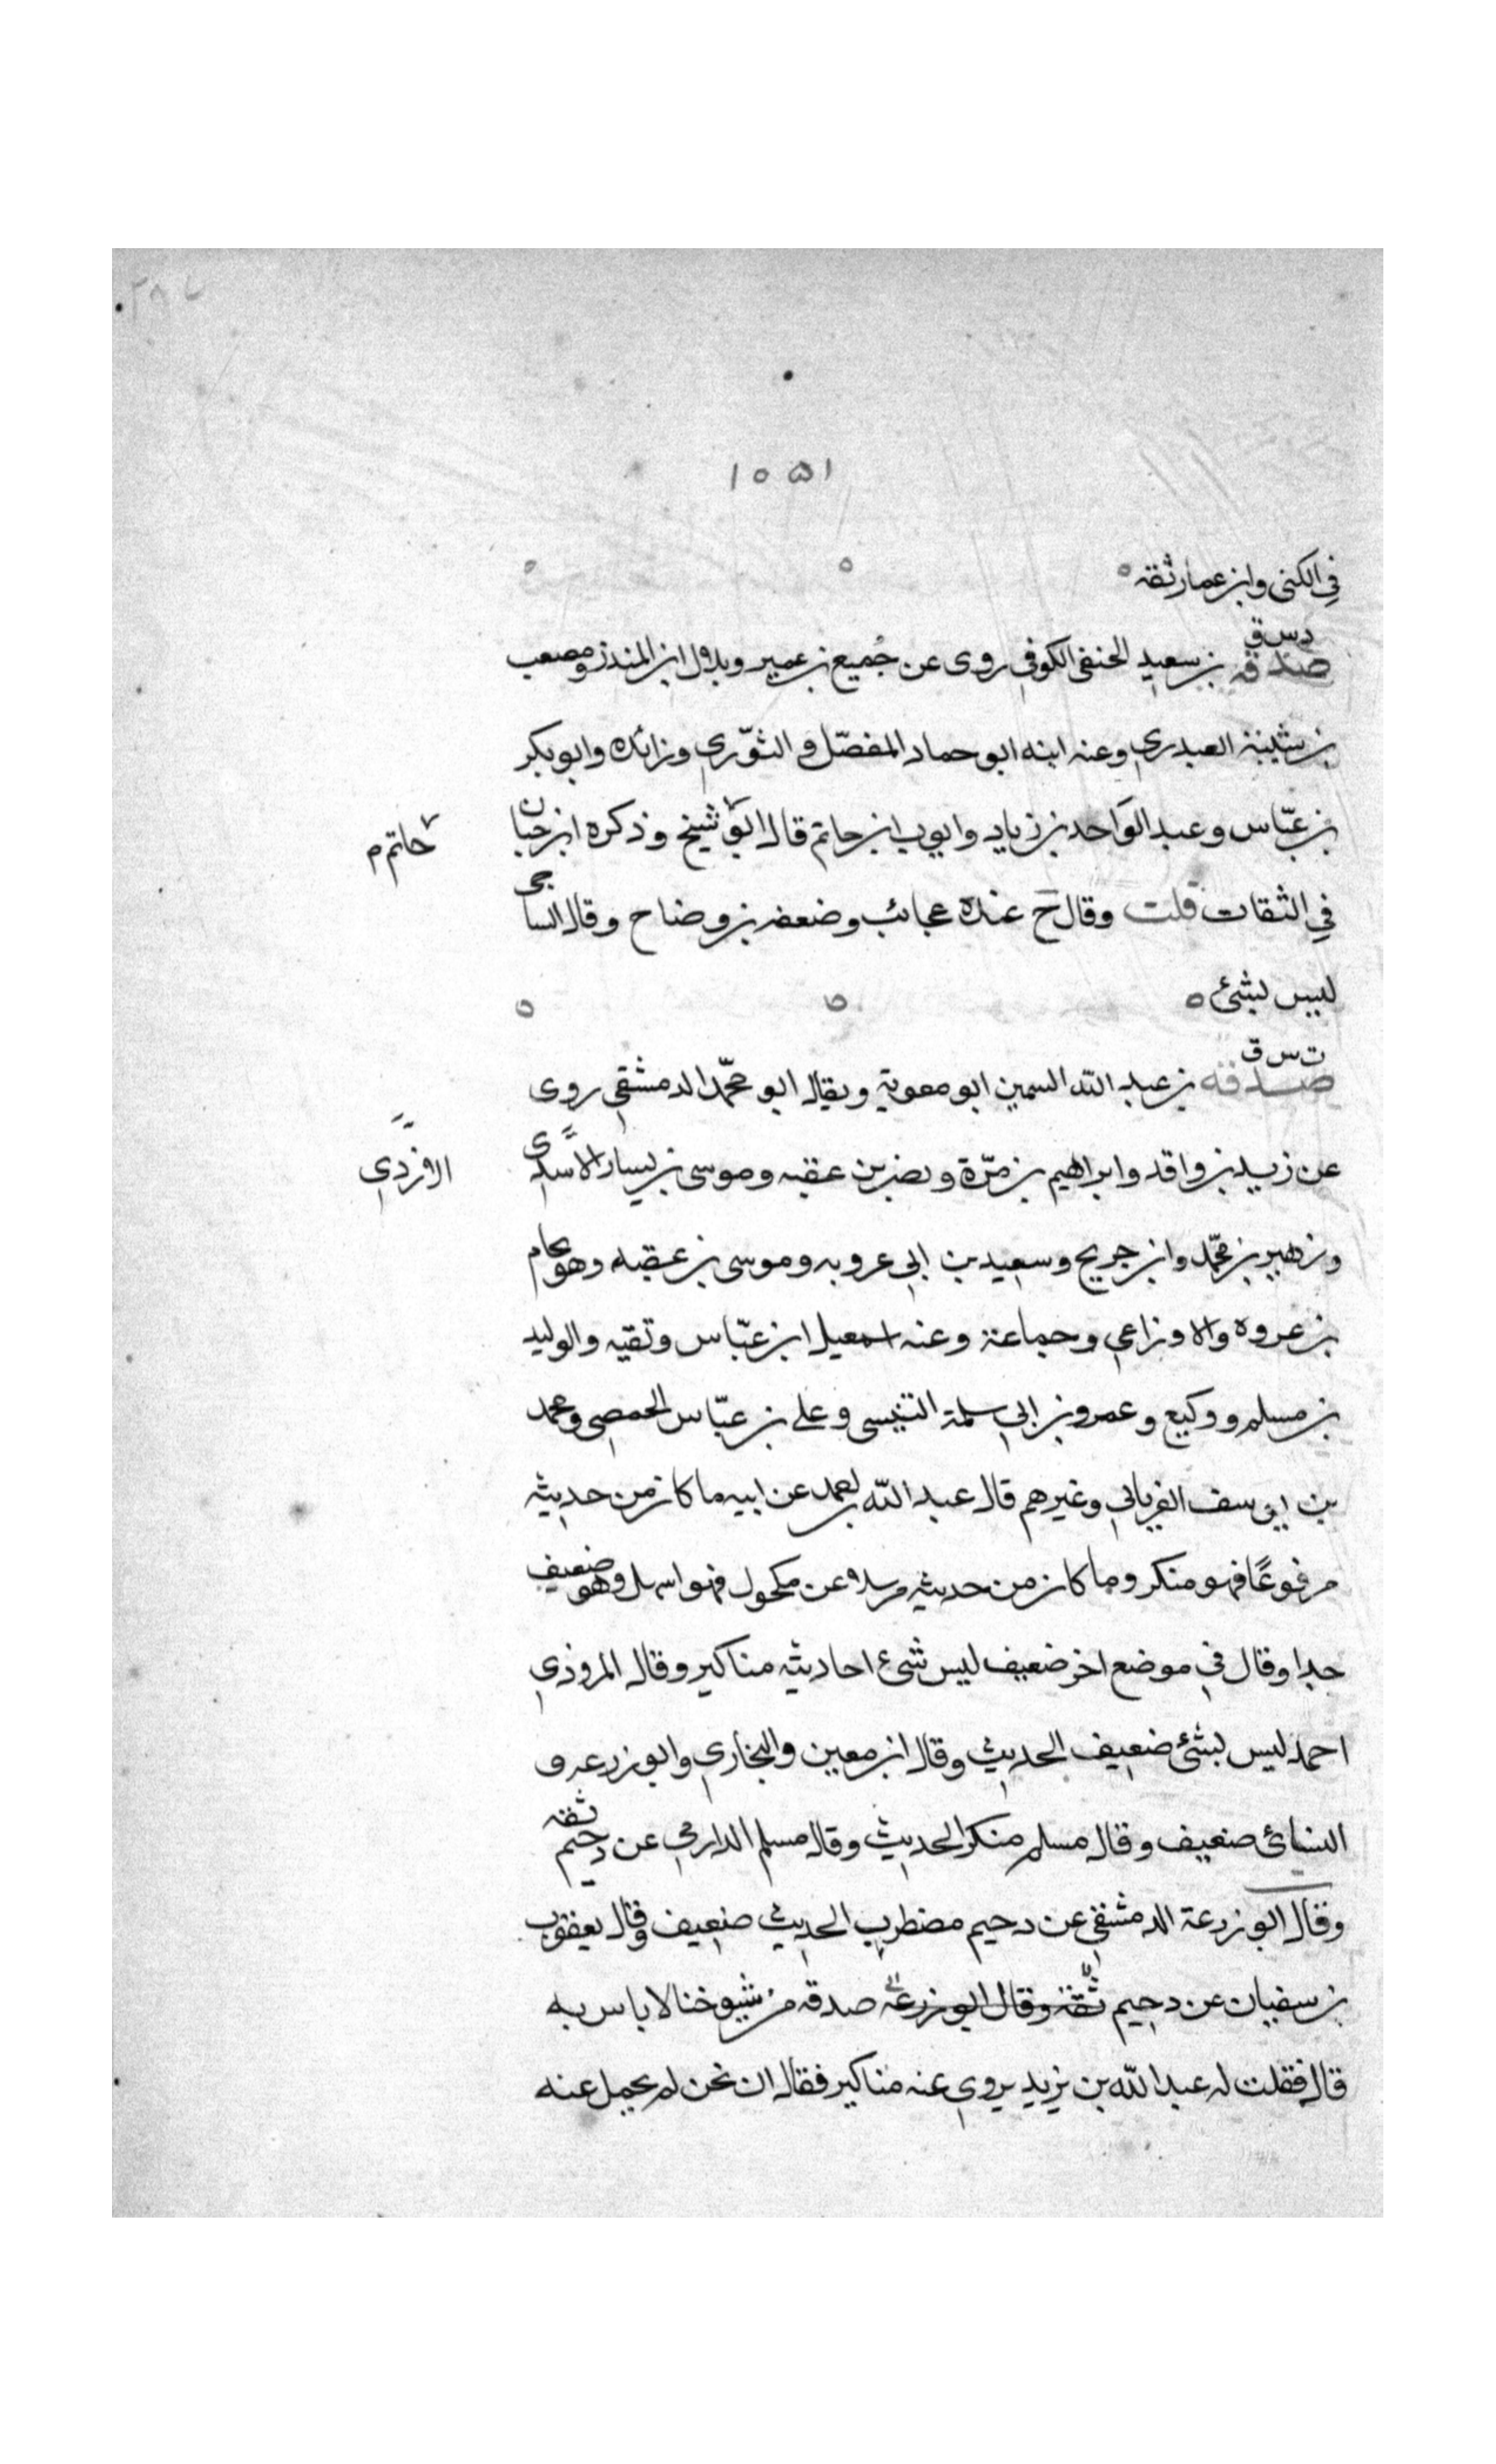 ١٥٥١
في الكنى وابن عمار ثقه
د س ق
صدقه بن سعيد الحنفي الكوفي روى عن جُميع بن عمير وبلال ابن المنذر ومصعب
بن شيبة العبدري وعنه ابنه ابو حماد المفضّل و الثوّري وزائده وابو بكر
بن عبّاس وعبد الواحد بن زياد وايوب ابن حاتم قال ابو شيخ وذكره ابن حبان
حاتم م
في الثقات قلت وقال خ عنده عجائب وضعفه بن وضاح وقال الساجى
ليس بشئ
ت س ق
صدقه بن عبد الله السمين ابو معوية ويقال ابو محمّد الدمشقي روى
عن زيد بن واقد وابراهيم بن مرّة ونصر بن عقبه وموسى بن يسار الاسدى
الازدي
وزهير بن محمّد وابن جريج وسعيد بن ابي عروبه وموسى بن عقبه وهشام
بن عروه والاوزاعي وجماعة وعنه اسمعيل ابن عبّاس وتقيه والوليد
بن مسلم ووكيع وعمرو بن ابي سلمة التنيسى وعلى بن عبّاس الحمصي ومحمد
بن يوسف الفريابي وغيرهم قال عبد الله بن احمد عن ابيه ما كان من حديثه
مرفوعًا فهو منكر وما كان من حديثه مرسلا عن مكحول فهو اسهل وهو ضعيف
جدا وقال في موضع اخر ضعيف ليس شئ احاديثه مناكير وقال المروذي
احمد ليس بشئ ضعيف الحديث وقال ابن معين والبخاري وابو زرعه و
النسائ ضعيف وقال مسلم منكر الحديث وقال مسلم الدارمي عن دحيم ثقه
وقال ابو زرعة الدمشقي عن دحيم مضطرب الحديث ضعيف وقال يعقوب
بن سفيان عن دحيم ثقة وقال ابو زرعه صدقه من شيوخنا لا باس به
قال فقلت له عبد الله بن يزيد يروي عنه مناكير فقال ان نحن لم نحمل عنه